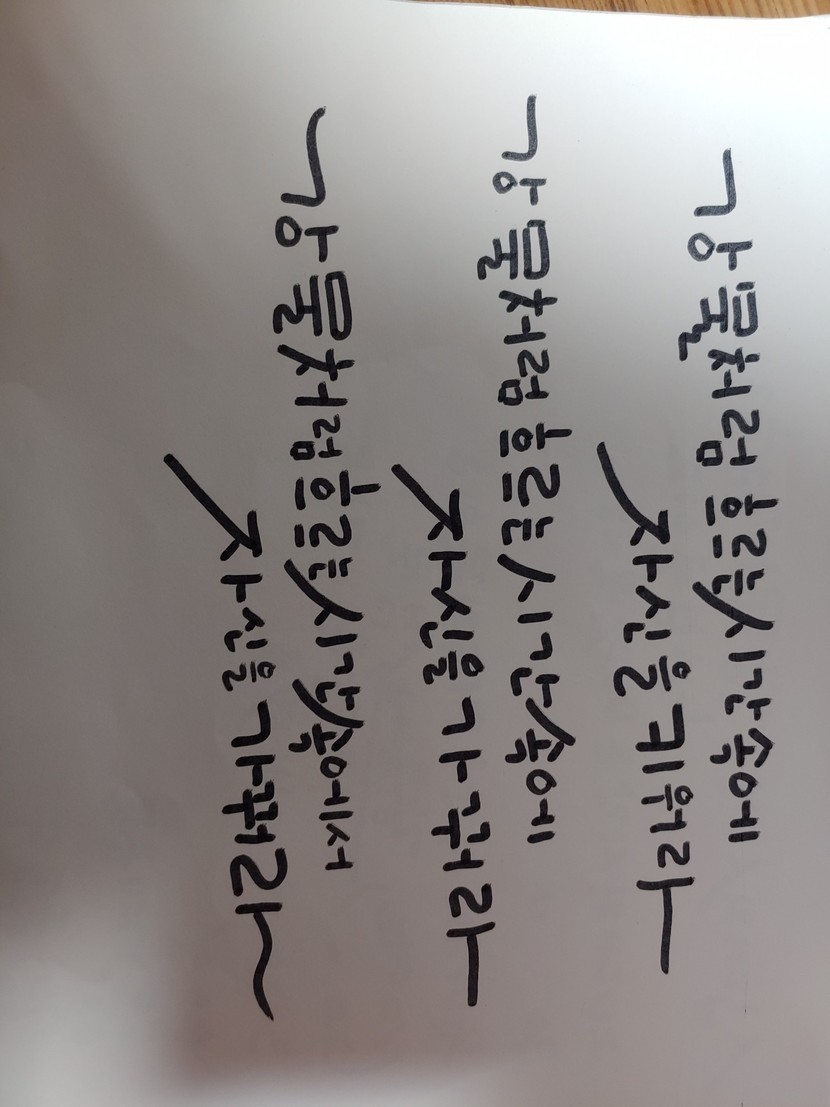 강물처럼 흐르는 시간 속에
자신을 키워라
강물처럼 흐르는 시간 속에
자신을 가꿔라
강물처럼 흐르는 시간 속에서
자신을 가꿔라